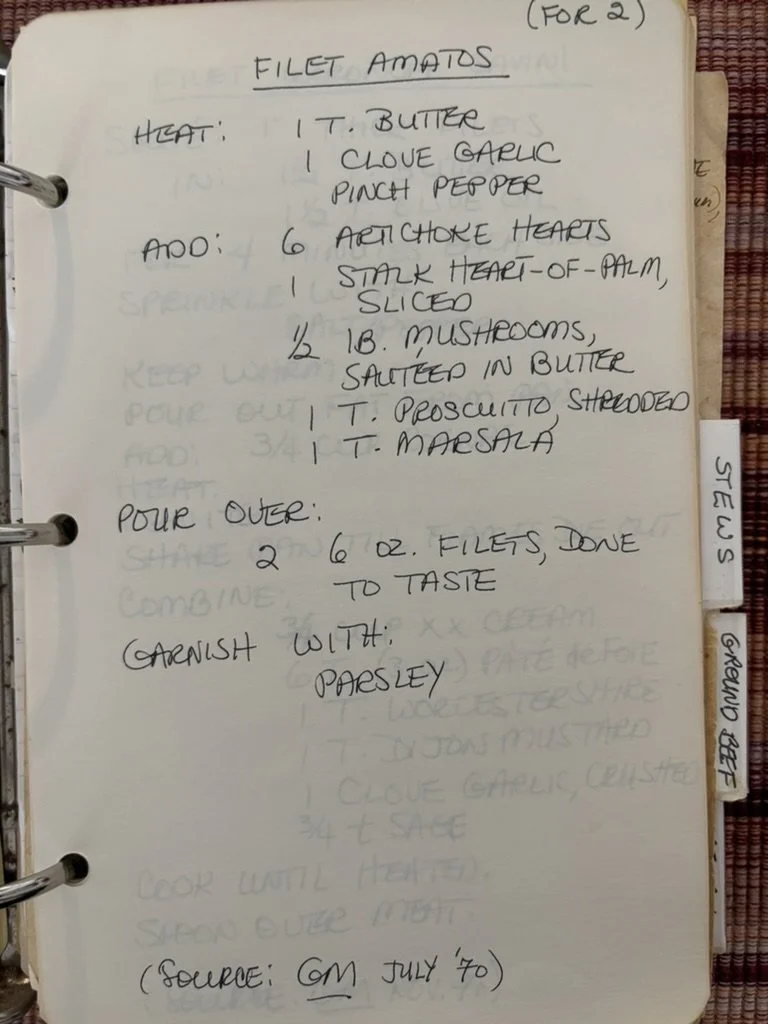 (FOR 2)
FILET AMATOS
HEAT: 1 T. BUTTER
1 CLOVE GARLIC
PINCH PEPPER
ADD: 6 ARTICHOKE HEARTS
1 STALK HEART-OF-PALM,
SLICED
1/2 lB. MUSHROOMS,
SAUTEED IN BUTTER
1 T. PROSCUITTO, SHREDDED
1 T. MARSALA
POUR OVER:
2 6 OZ. FILETS, DONE
TO TASTE
GARNISH WITH:
PARSLEY
(SOURCE: GM JULY '70)
STEWS
GROUND BEEF